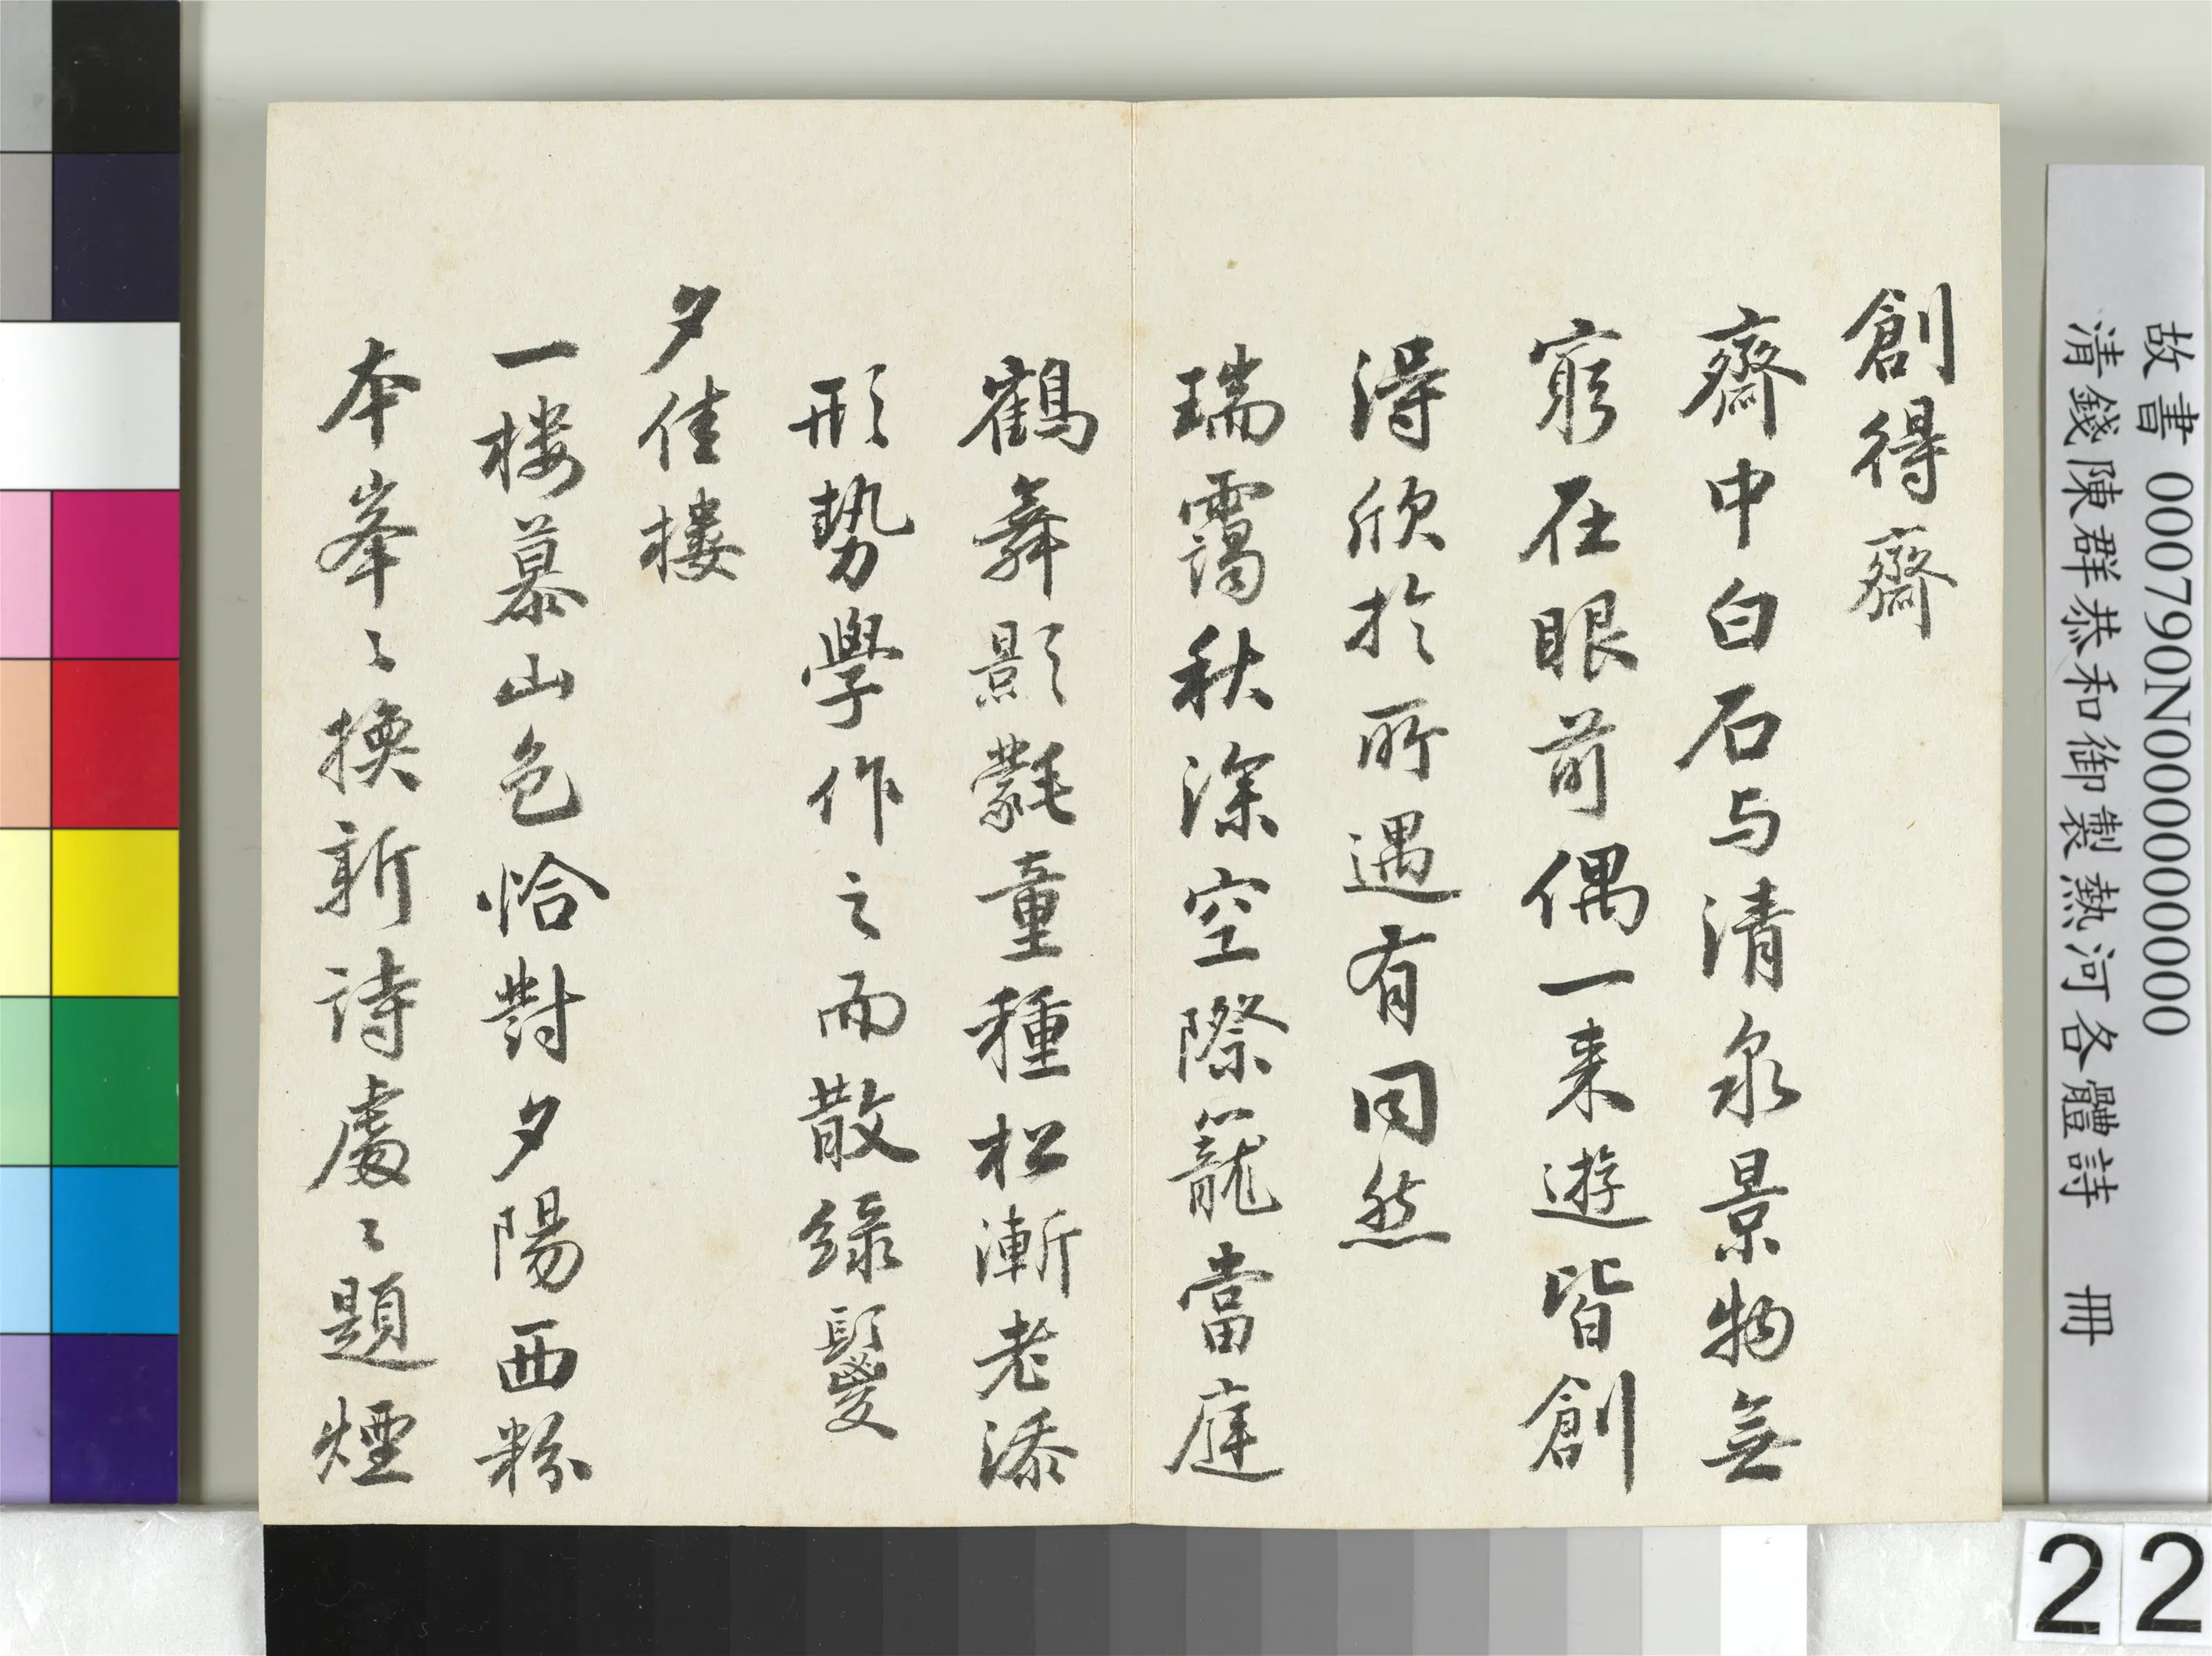 創得齋
齋中白石与清泉景物無
窮在眼前偶一来遊皆創
得欣於所遇有同然
瑞靄秋深空際籠當庭
鶴舞影氋童種松漸老添
形勢學作之而散綠鬟
夕佳樓
一楼暮山色恰對夕陽西粉
本峯〻換新詩處〻題煙
故書 000790N000000000
清錢陳群恭和御製熱河各體詩 冊
22